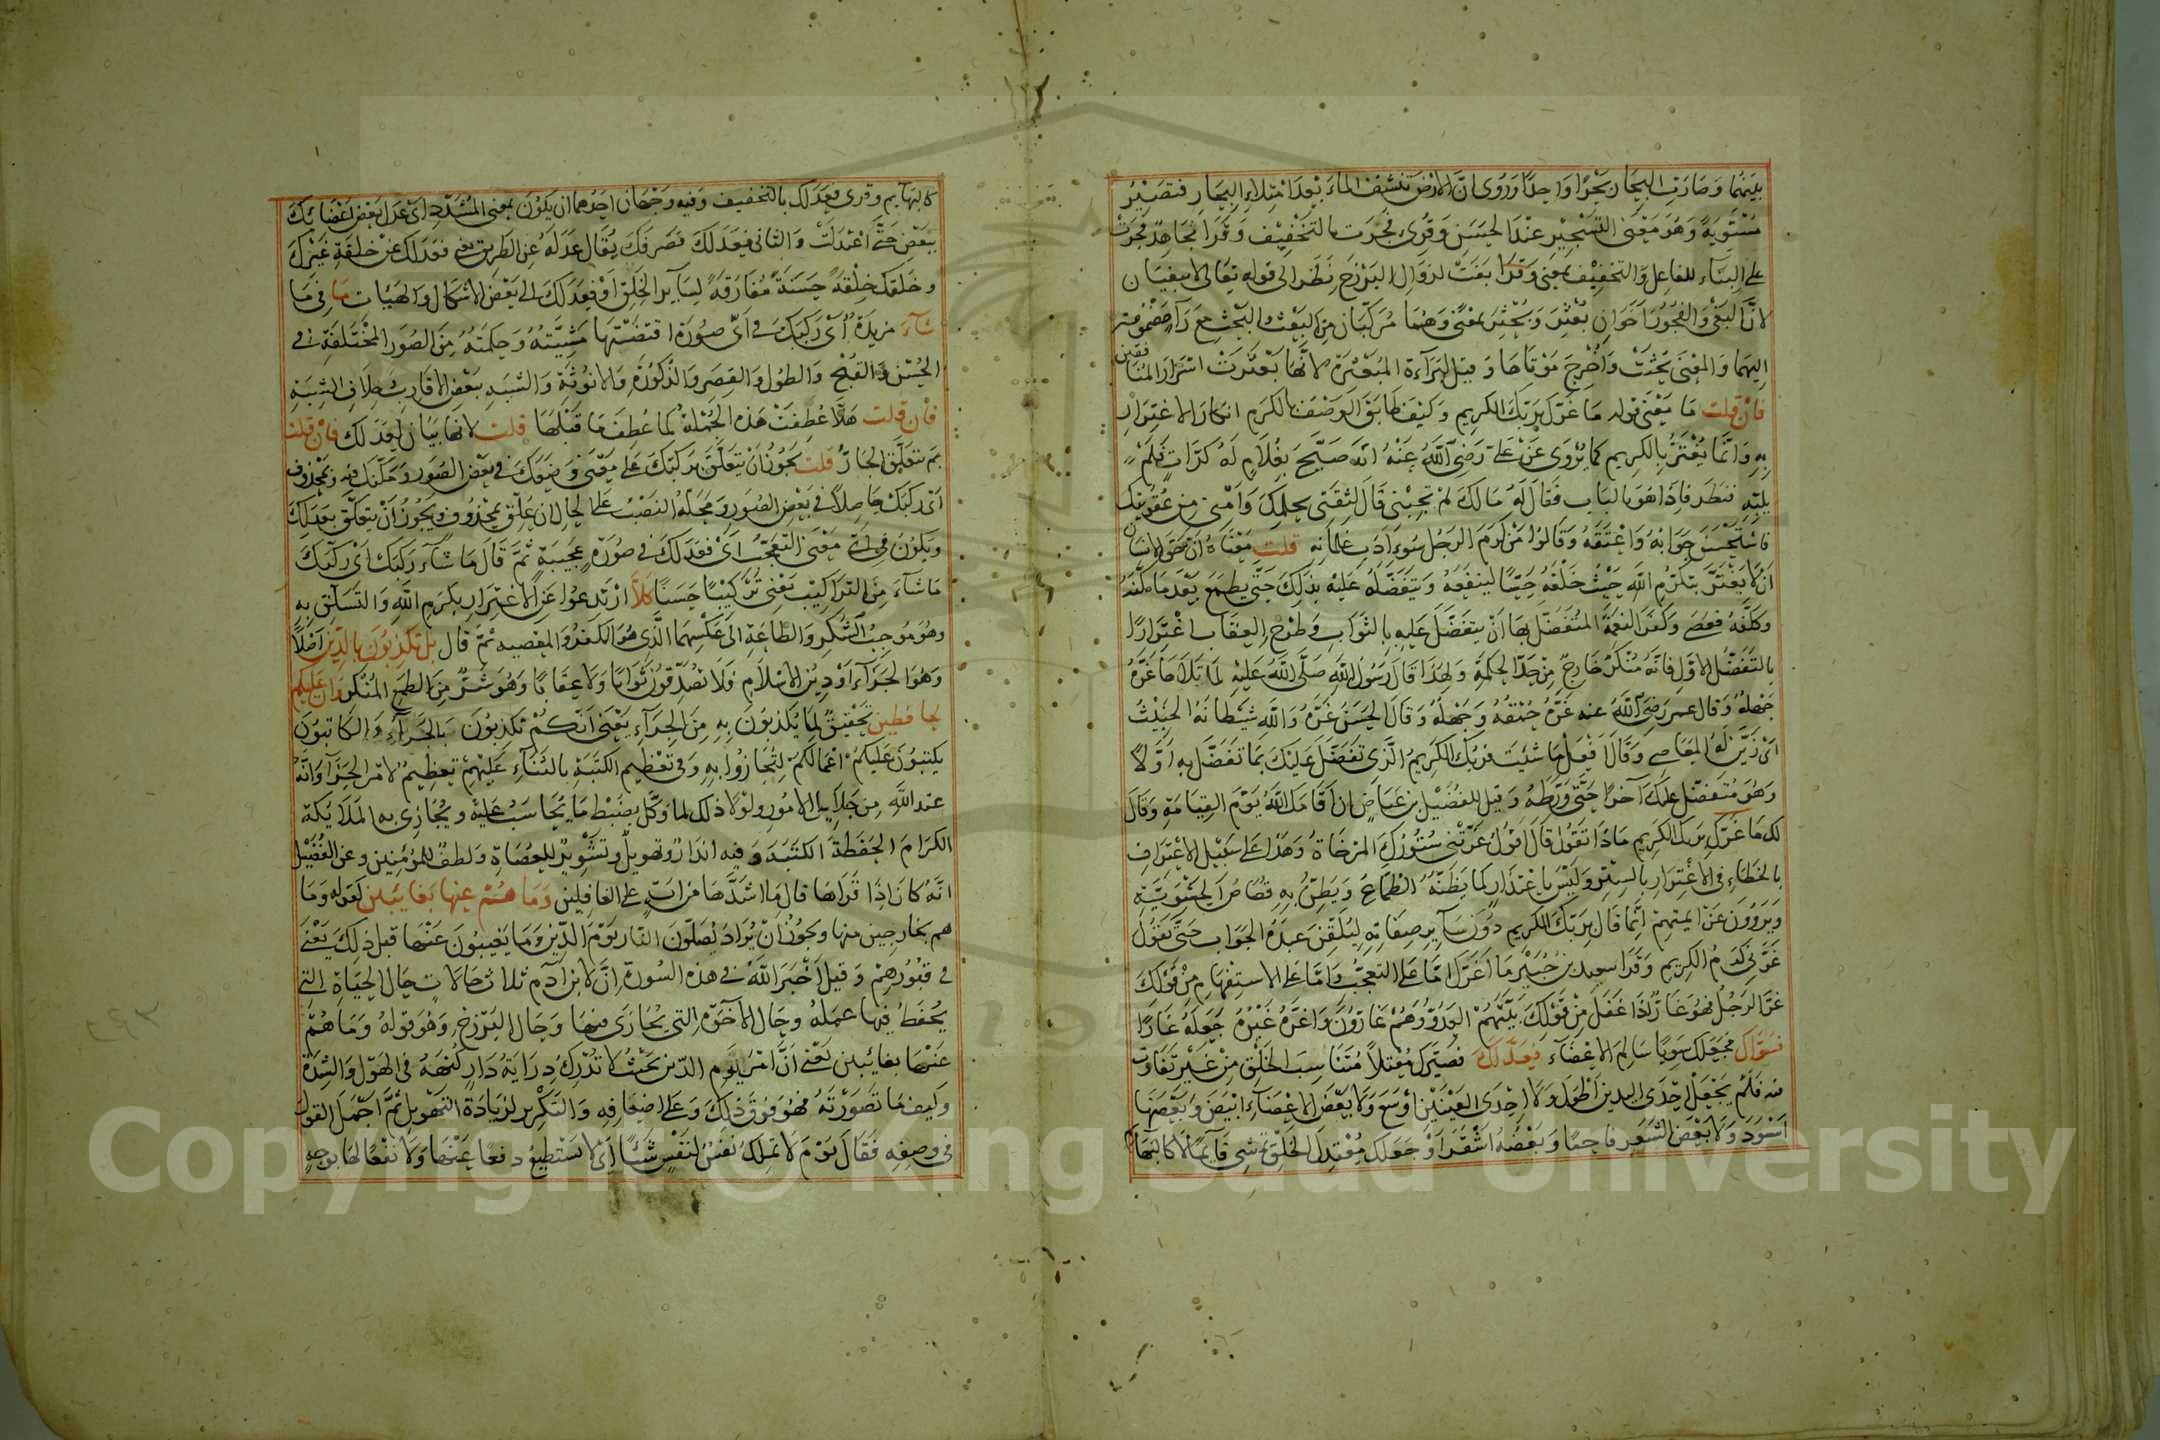 بينهما وصارت البحار بحرا واحدا وروي ان الارض تنشف الماء بعد امتلاء البحار فتصير
مستوية وهو معنى التسجير عند الحسن وقرئ فجرت بالتخفيف وقرا مجاهد فجرت
على البناء للفاعل والتخفيف بمعنى وقرا بغت لزوال البرزخ نظرا الى قوله تعالى لا يبغيان
لان البغي والفجور اخوان بعثر وبحثر بمعنى وهما مركبان من البعث والبحث مع راء مضمومة
اليهما والمعنى بحثت واخرج موتاها وقيل لبراءة المبعثرة لانها بعثرت اسرار المنافقين
فان قلت ما معنى قوله ما غرك بربك الكريم وكيف طابق الوصف بالكرم انكار الاغترار
به وانما يغتر بالكريم كما يروى عن علي رضي الله عنه انه صيح بغلام له كرات فلم
يلبه فنظر فاذا هو بالباب فقال له مالك لم تجبني قال لثقتي بحلمك وامني من عقوبتك
فاستحسن جوابه واعتقه وقالوا من كرم الرجل سوء ادب غلمانه قلت معناه ان حق الانسان
ان لا يغتر بتكرم الله حيث خلقه حيا لينفعه وبتفضله عليه بذلك حتى يطمع بعد ما مكنه
وكلفه فعصى وكفر النعمة المتفضل بها ان يتفضل عليه بالثواب وطرح العقاب اغترارا
بالتفضل الاول فانه منكر خارج من حد الحكمة ولهذا قال رسول الله صلى الله عليه لما تلاها غره
جهله وقال عمر رضي الله عنه غره حمقه وجهله وقال الحسن غره والله شيطانه الخبيث
اي زين له المعاصي وقال افعل ما شئت فربك الكريم الذي تفضل عليك بما تفضل به اولا
وهو متفضل عليك آخرا حتى ورطه وقيل للفضيل بن عياض ان اقامك الله يوم القيامة وقال
لك ما غرك بربك الكريم ماذا تقول قال اقول غرتني ستورك المرخاة وهذا على سبيل الاعتراف
بالخطاء في الاغترار بالستر وليس باعتذار كما يظنه الطماع ويطن به قصاص الحشوية
ويروون عن ايمتهم انما قال بربك الكريم دون ساير صفاته ليلقن عبده الجواب حتى يقول
غرني كرم الكريم وقرا سعيد بن جبير ما اغرك اما على التعجب واما على الاستفهام من قولك
غر الرجل فهو غار اذا غفل من قولك بيتهم العدو وهم غارون واغره غيره جعله غارا
فسواك فجعلك سويا سالم الاعضاء فعدلك فصيرك معتدلا متناسب الخلق من غير تفاوت
فيه فلم يجعل احدى اليدين اطول ولا احدى العينين اوسع ولا بعض الاعضاء ابيض وبعضها
اسود ولا بعض الشعر فاحما وبعضه اشقر او جعلك معتدل الخلق تمشي قايما لا كالبهائم
كالبهايم وقرئ فعدلك بالتخفيف وفيه وجهان احدهما ان يكون بمعنى المشدد اي عدل بعض اعضائك
ببعض حتى اعتدلت والثاني فعدلك فصرفك يقال عدله عن الطريق يعني فعدلك عن خلقة غيرك
وخلقك خلقة حسنة مفارقة لساير الخلق او فعدلك الى بعض الاشكال والهيئات ما في ما
شاء مزيدة اي ركبك في اي صورة اقتضتها مشيته وحكمته من الصور المختلفة في
الحسن والقبح والطول والقصر والذكورة والانوثة والشبه ببعض الاقارب وخلاف الشبه
فان قلت هلا عطفت هذه الجملة كما عطف ما قبلها قلت لانها بيان لعدلك فان قلت
بم يتعلق الجار قلت يجوز ان يتعلق بركبك على معنى وضعك في بعض الصور ومكنك فيه وبمحذوف
اي ركبك حاصلا في بعض الصور ومحله النصب على الحال ان علق بمحذوف ويجوز ان يتعلق بعدلك
ويكون في اي معنى التعجب اي فعدلك في صورة عجيبة ثم قال ما شاء ركبك اي ركبك
ما شاء من التراكيب يعني تركيبا حسنا كلا ارتدعوا عن الاغترار بكرم الله والتسلق به
وهو موجب الشكر والطاعة الى عكسهما الذي هو الكفر والمعصية ثم قال بل تكذبون بالدين اصلا
وهو الجزاء او دين الاسلام فلا تصدقون ثوابا ولا عقابا وهو شر من الطمع المنكر وان عليكم
لحافظين تحقيق لما يكذبون به من الجزاء يعني انكم تكذبون بالجزاء والكاتبون
يكتبون عليكم اعمالكم لتجازوا به وفي تعظيم الكتبة بالثناء عليهم تعظيم لامر الجزاء وانه
عند الله من جلايل الامور ولولا ذلك لما وكل بضبط ما يحاسب عليه ويجازي به الملايكة
الكرام الحفظة الكتبة وفيه انذار وتهويل وتشوير للعصاة ولطف للمؤمنين وعن الفضيل
انه كان اذا قراها قال ما اشدها من اية على الغافلين وما هم عنها بغائبين كقوله وما
هم بخارجين منها ويجوز ان يراد يصلون النار يوم الدين وما يغيبون عنها قبل ذلك يعني
في قبورهم وقيل اخبر الله في هذه السورة ان لابن آدم ثلاث حالات حال الحياة التي
يحفظ فيها عمله وحال الآخرة التي يجازى فيها وحال البرزخ وهو قوله وما هم
عنها بغائبين يعني ان امر يوم الدين بحيث لا تدرك دراية دار كنهه في الهول والشدة
وكيف ما تصورته فهو فوق ذلك وعلى اضعافه والتكرير لزيادة التهويل ثم اجمل القول
في وصفه فقال يوم لا تملك نفس لنفس شيئا اي لا تستطيع دفعا عنها ولا نفعا لها بوجه
Copyright © King Saud University